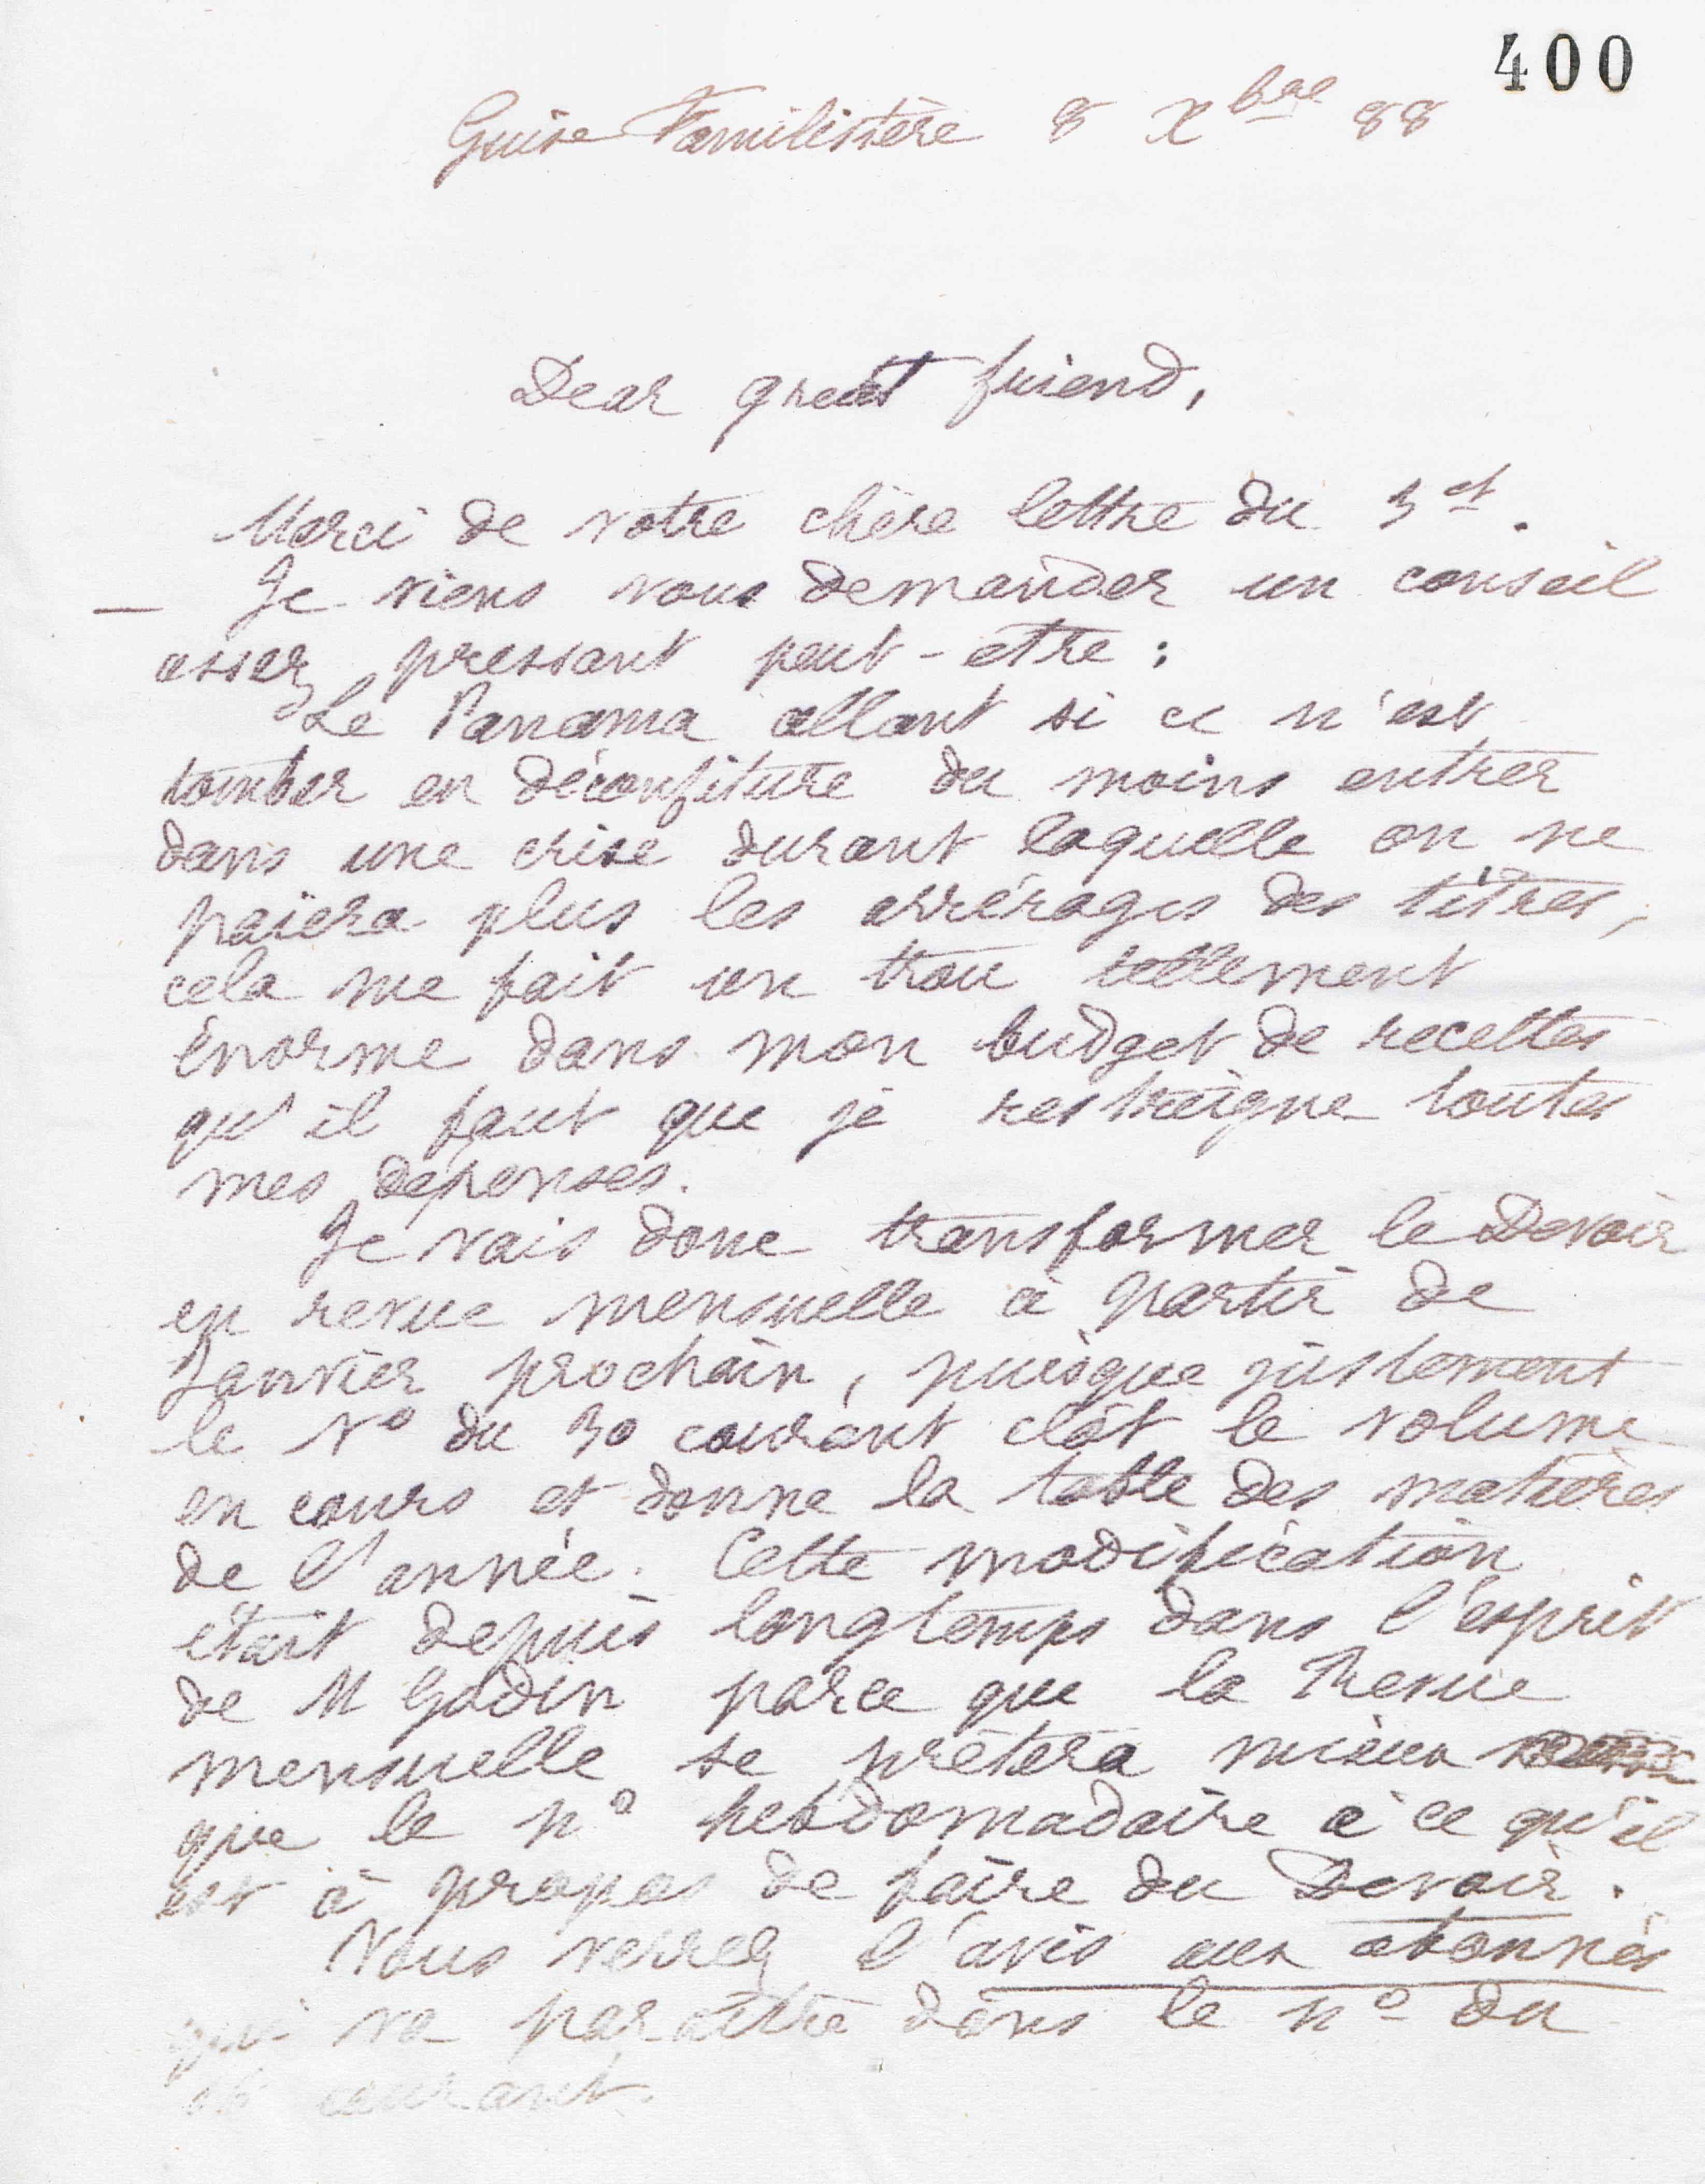 400
Guise Familistère 8 Xbre 88
Dear great friend,
Merci de votre chère lettre du 3 ct.
— Je viens vous demander un conseil
assez pressant peut-etre :
Le Panama allant si ce n'est
tomber en déconfiture du moins entrer
dans une crise durant laquelle on ne
païera plus les arrérages des titres,
cela me fait un trou tellement
énorme dans mon budget de recettes
qu'il faut que je restreigne toutes
mes dépenses.
Je vais donc transformer le Devoir
en revue mensuelle à partir de
Janvier prochain, puisque justement
le No du 30 courant clôt le volume
en cours et donne la table des matières
de l'année. Cette modification
était depuis longtemps dans l'esprit
de M Godin parce que la Revue
mensuelle se prêtera mieux
que le no hebdomadaire à ce qu'il
est à propos de faire du Devoir.
Vous verrez l'avis aux abonnés
qui va paraître dans le no du
16 courant.